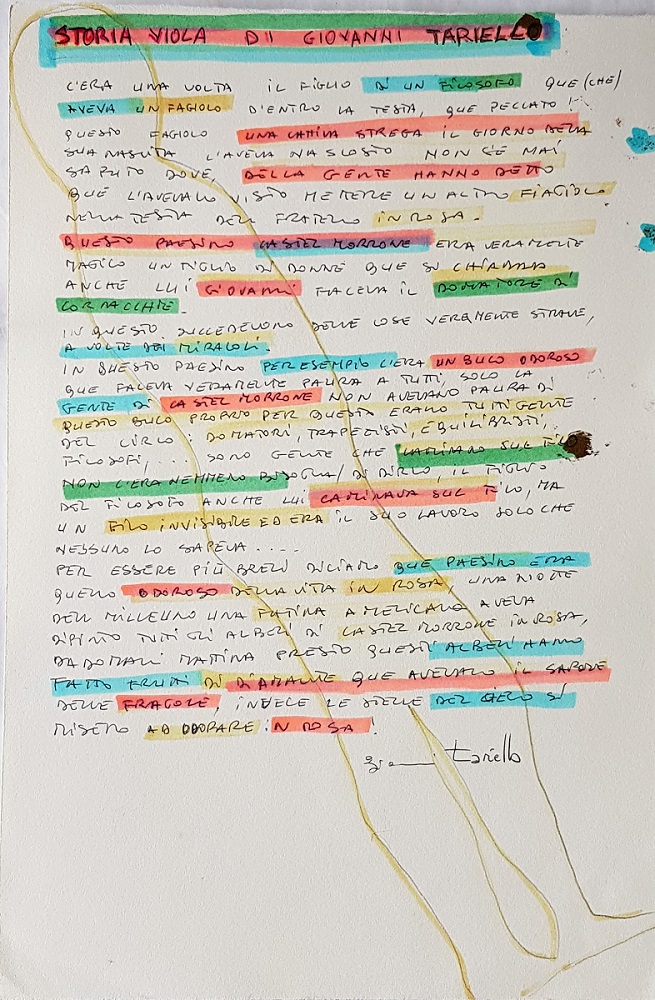 STORIA VIOLA DI GIOVANNI TARIELLO
C'ERA UNA VOLTA IL FIGLIO DI UN FILOSOFO QUE (CHE)
AVEVA UN FAGIOLO D'ENTRO LA TESTA, QUE PECCATO!
QUESTO FAGIOLO UNA CATTIVA STREGA IL GIORNO DELLA
SUA NASCITA L'AVEVA NASCOSTO NON C'È MAI
SAPUTO DOVE, DELLA GENTE HANNO DETTO
QUE L'AVEVANO VISTO METTERE UN ALTRO FAGIOLO
NELLA TESTA DEL FRATELLO IN ROSA.
QUESTO PAESINO CASTEL MORRONE ERA VERAMENTE
MAGICO UN FIGLIO DI DONNE QUE SI CHIAMAVA
ANCHE LUI GIOVANNI FACEVA IL DOMATORE DI
CORNACCHIE.
IN QUESTO, SUCCEDEVONO DELLE COSE VERAMENTE STRANE,
A VOLTE DEI MIRACOLI.
IN QUESTO PAESINO PER ESEMPIO C'ERA UN BUCO ODOROSO
QUE FACEVA VERAMENTE PAURA A TUTTI, SOLO LA
GENTE DI CASTEL MORRONE NON AVEVANO PAURA DI
QUESTO BUCO PROPRIO PER QUESTO ERANO TUTTI GENTE
DEL CIRCO: DOMATORI, TRAPEZISTI, EQUILIBRISTI,
FILOSOFI, .... SONO GENTE CHE CAMINANO SUL FILO
NON C'ERA NEMMENO BISOGNO DI DIRLO, IL FIGLIO
DEL FILOSOFO ANCHE LUI CAMINAVA SUL FILO, MA
UN FILO INVISIBILE ED ERA IL SUO LAVORO SOLO CHE
NESSUNO LO SAPEVA ....
PER ESSERE PIÙ BREVI DICIAMO QUE PAESINO ERA
QUELLO ODOROSO DELLA VITA IN ROSA, UNA NOTTE
DELL MILLEUNO UNA FATINA AMERICANA AVEVA
DIPINTO TUTTI GLI ALBERI DI CASTEL MORRONE IN ROSA,
DADOMANI MATTINA PRESTO QUESTI ALBERI HANNO
FATTO FRUTTI DI DIAMANTE QUE AVEVANO IL SAPORE
DELLE FRAGOLE, INVECE LE STELLE DEL CIELO SI
MISERO AD ODORARE IN ROSA!
tariello